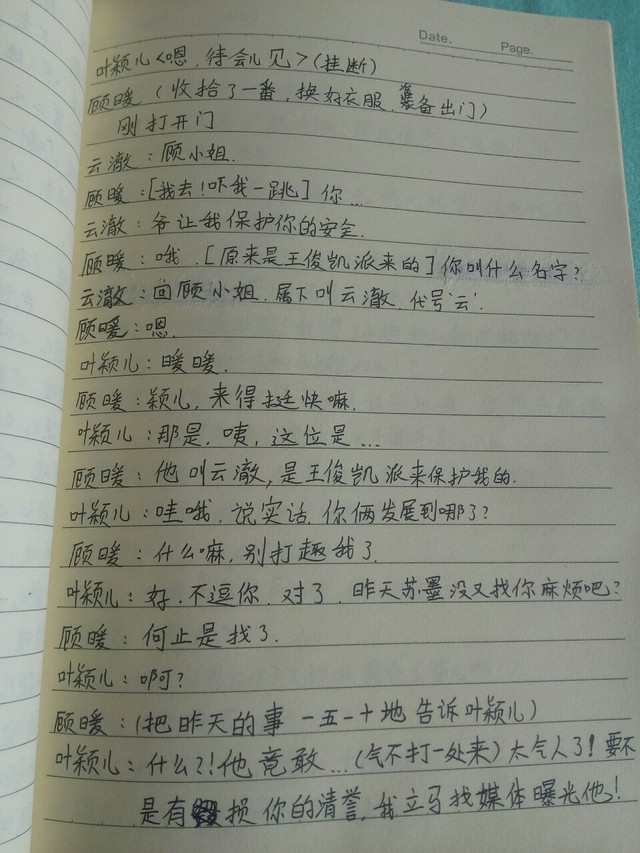 Date. Page.
叶颖儿<嗯，待会儿见>(挂断)
顾暖（收拾了一番，换好衣服，准备出门）
刚打开门
云澈：顾小姐.
顾暖：[我去！吓我一跳]你...
云澈：爷让我保护你的安全.
顾暖：哦.[原来是王俊凯派来的]你叫什么名字？
云澈：回顾小姐.属下叫云澈.代号'云'.
顾暖：嗯.
叶颖儿：暖暖.
顾暖：颖儿，来得挺快嘛.
叶颖儿：那是.咦，这位是...
顾暖：他叫云澈，是王俊凯派来保护我的.
叶颖儿：哇哦.说实话.你俩发展到哪了？
顾暖：什么嘛，别打趣我了.
叶颖儿：好.不逗你.对了.昨天苏墨没又找你麻烦吧？
顾暖：何止是找了.
叶颖儿：啊？
顾暖：(把昨天的事一五一十地告诉叶颖儿)
叶颖儿：什么？！他竟敢...(气不打一处来)太气人了！要不
是有损你的清誉，我立马找媒体曝光他！